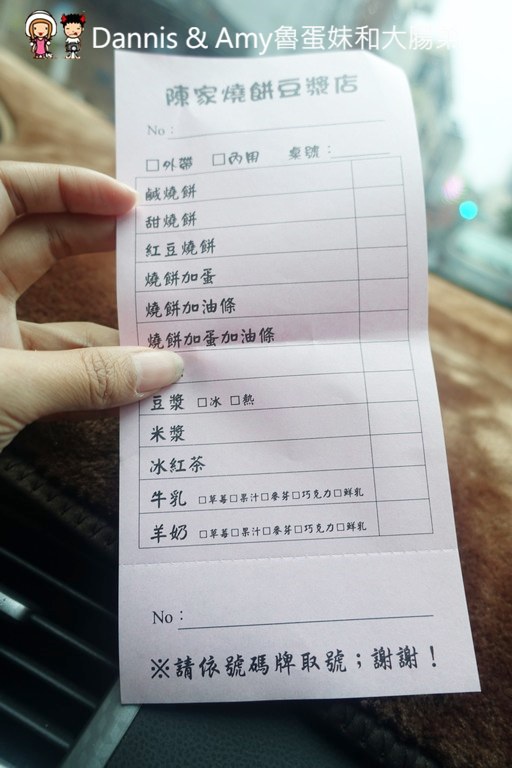 Dannis & Amy魯蛋妹和大腸
陳家燒餅豆漿店
No：
□外帶 □內用 桌號：
鹹燒餅
甜燒餅
紅豆燒餅
燒餅加蛋
燒餅加油條
燒餅加蛋加油條
豆漿 □冰 □熱
米漿
冰紅茶
牛乳 □草莓□果汁□麥芽□巧克力□鮮乳
羊奶 □草莓□果汁□麥芽□巧克力□鮮乳
No：
※請依號碼牌取號；謝謝！